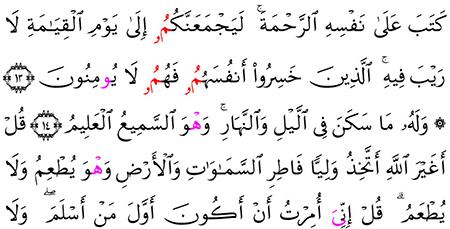 كَتَبَ عَلَىٰ نَفْسِهِ ٱلرَّحْمَةَۚ لَيَجْمَعَنَّكُمُۥ إِلَىٰ يَوْمِ ٱلْقِيَٰمَةِ لَا
رَيْبَ فِيهِۚ ٱلَّذِينَ خَسِرُوٓا۟ أَنفُسَهُمُۥ فَهُمُۥ لَا يُومِنُونَ ﴿١٣﴾
۞ وَلَهُۥ مَا سَكَنَ فِى ٱلَّيْلِ وَٱلنَّهَارِۚ وَهْوَ ٱلسَّمِيعُ ٱلْعَلِيمُ ﴿١٤﴾ قُلْ
أَغَيْرَ ٱللَّهِ أَتَّخِذُ وَلِيًّا فَاطِرِ ٱلسَّمَٰوَٰتِ وَٱلْأَرْضِ وَهْوَ يُطْعِمُ وَلَا
يُطْعَمُۗ قُلْ إِنِّىَ أُمِرْتُ أَنْ أَكُونَ أَوَّلَ مَنْ أَسْلَمَۖ وَلَا